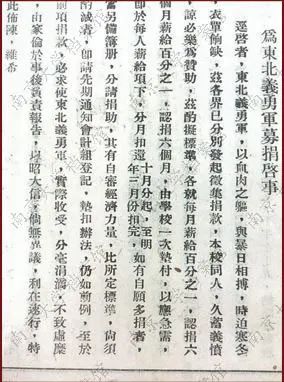 爲東北義勇軍募捐啓事
逕啓者，東北義勇軍，以血肉之軀，與暴日相搏，時迫寒冬
衣單餉缺，茲各界已分別發起徵集捐款，本校同人，久蓄義憤
諒必樂爲贊助，茲酌擬標準，各就每月薪給百分之一，認捐六
個月薪給百分之一，認捐六個月，由學校一次墊付，以應急需，
即於每人薪給項下，分月扣還十月份起，至明年三月份扣完，如有自願多捐者，
當另備簿册，分請捐助，其有自審經濟力量，比所定標準，尚須
酌減者，即請先期通知會計組登記，墊扣辦法，仍如前例，至於
前項捐款，必求使東北義勇軍，實際收受，分毫涓滴，不致虛糜
，由家倫於事後負責報告，以昭大信，倘無異議，利在速行，特
此佈陳，維希